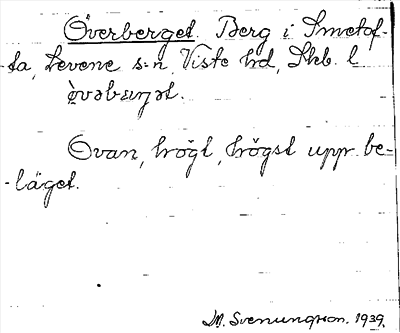 Överberget. Berg i Smetof-
ta, Levene s:n, Viste hd, Skb. l
Ovan, högt, högst upp be-
läget.
M. Svenungson. 1939.